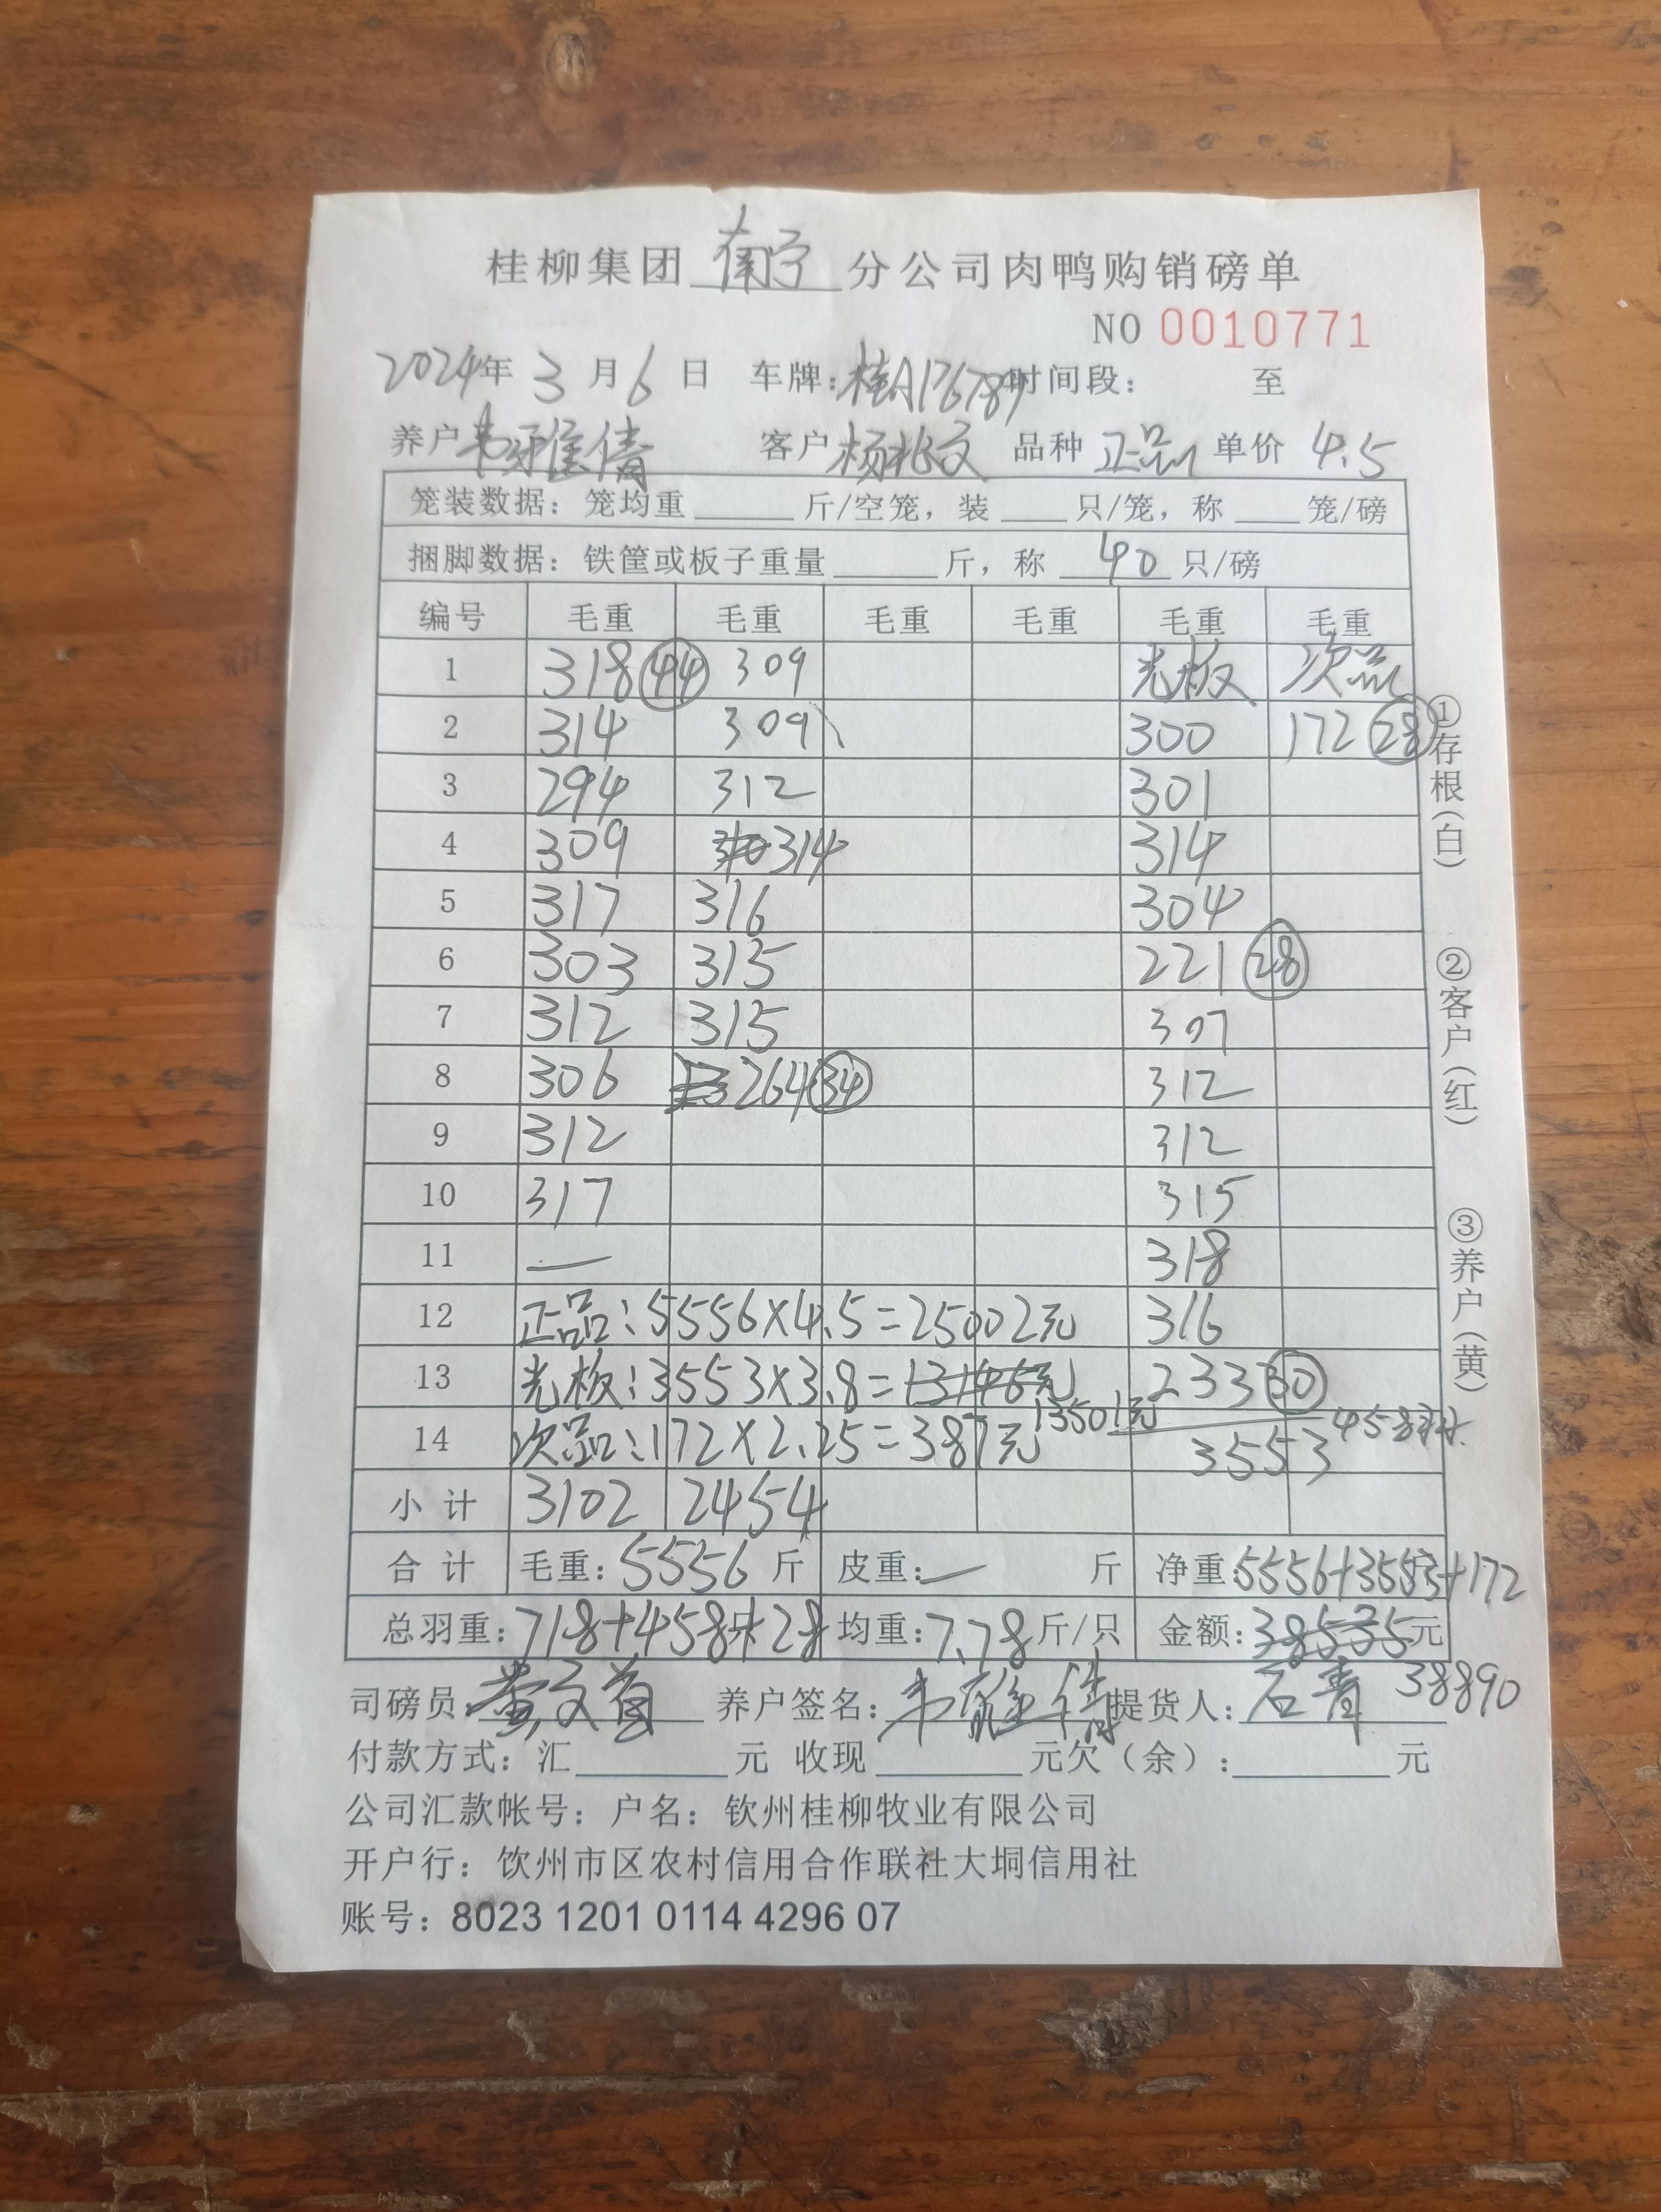 桂柳集团 南宁 分公司肉鸭购销磅单
NO 0010771
2024年 3 月 6 日 车牌: 时间段: 至
养户 韦雅倩 客户 杨兆文 品种 正品 单价 4.5
笼装数据: 笼均重 斤/空笼, 装 只/笼, 称 笼/磅
捆脚数据: 铁筐或板子重量 斤, 称 40 只/磅
编号 毛重 毛重 毛重 毛重 毛重 毛重
1 318 44 309 光板 次品
2 314 309 300 172 28
3 294 312 301
4 309 314 314
5 317 316 304
6 303 315 221 28
7 312 315 307
8 306 264 34 312
9 312 312
10 317 315
11 — 318
12 正品:5556×4.5=25002元 316
13 光板:3553×3.8=13146元 233 30
13501元 458只
14 次品:172×2.25=387元 3553
小计 3102 2454
合计 毛重: 5556 斤 皮重: — 斤 净重: 5556+3553+172
总羽重: 718+458+28 均重: 7.78 斤/只 金额: 38535 元
38890
司磅员: 黄文首 养户签名: 韦雅倩 提货人: 石青
付款方式: 汇 元 收现 元欠(余): 元
公司汇款帐号: 户名: 钦州桂柳牧业有限公司
开户行: 饮州市区农村信用合作联社大垌信用社
账号: 8023 1201 0114 4296 07
①存根(白) ②客户(红) ③养户(黄)